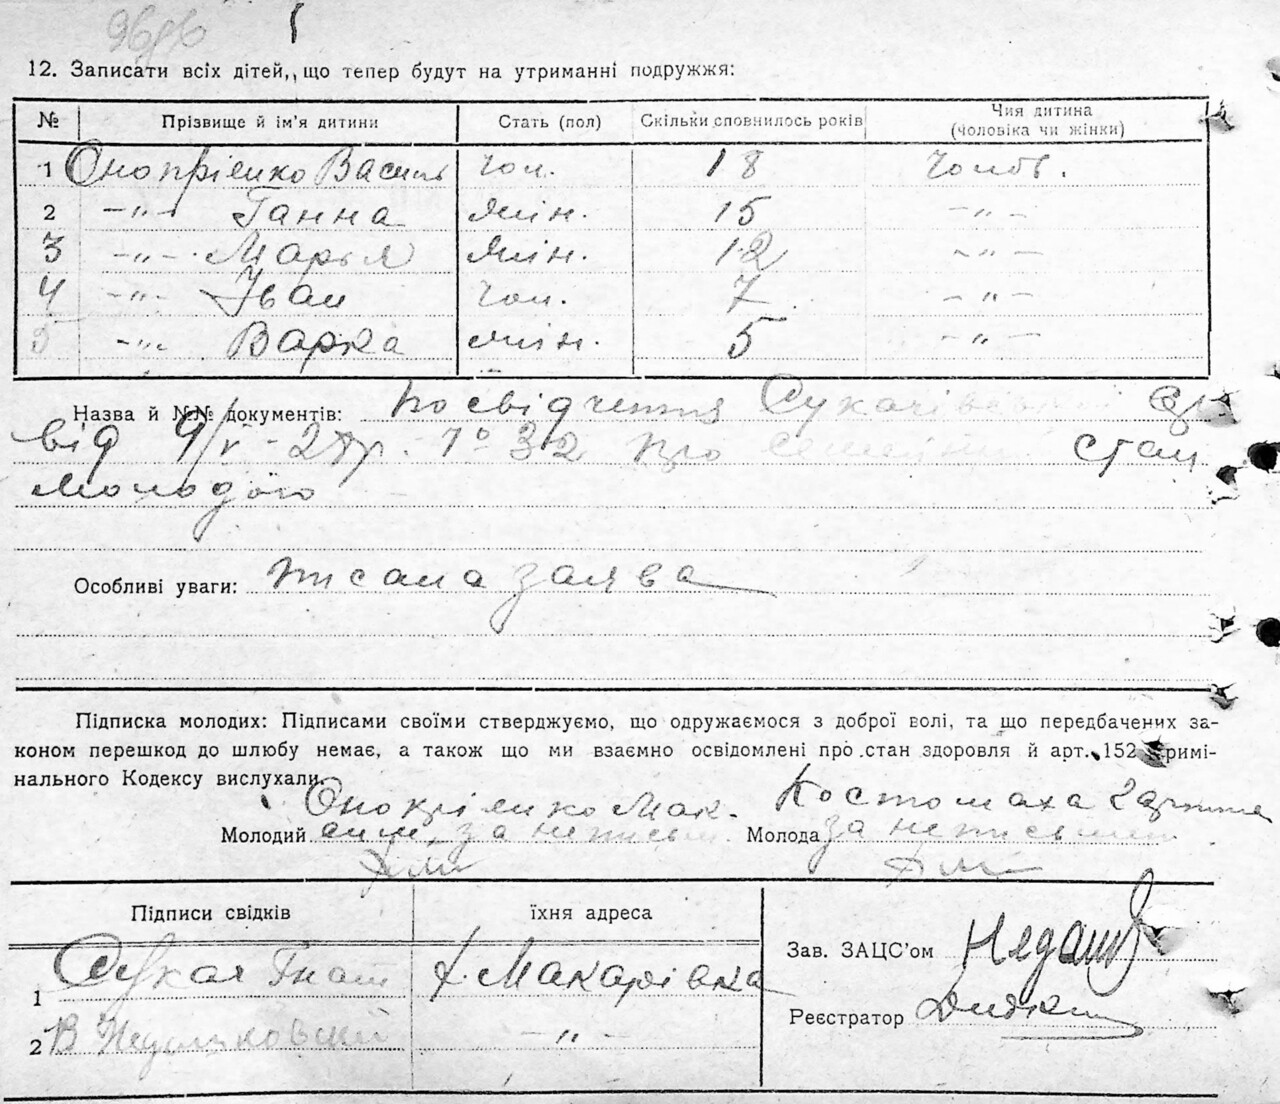 12. Записати всіх дітей, що тепер будут на утриманні подружжя:
№ Прізвище й ім'я дитини Стать (пол) Скільки сповнилось років Чия дитина (чоловіка чи жінки)
1 Оноприенко Василь чол. 18 Чолов.
2 -„- Ганна жін. 15 -„-
3 -„- Марья жін. 12 -„-
4 -„- Іван чол. 7 -„-
5 -„- Варка жін. 5 -„-
Назва й №№ документів: Посвідчення
від 9/V - 2 р. № 32 про стан
молодого
Особливі уваги: писана заява
Підписка молодих: Підписами своїми стверджуємо, що одружаємося з доброї волі, та що передбачених за-
коном перешкод до шлюбу немає, а також що ми взаємно освідомлені про стан здоровля й арт. 152 Кримі-
нального Кодексу вислухали.
Онопріенко Мак- Костомаха
Молодий сим за неписьм. Молода за неписьмен
Підписи свідків їхня адреса
1 Сукач Гнат х. Макарівка
2 В -„-
Зав. ЗАЦС'ом
Реєстратор